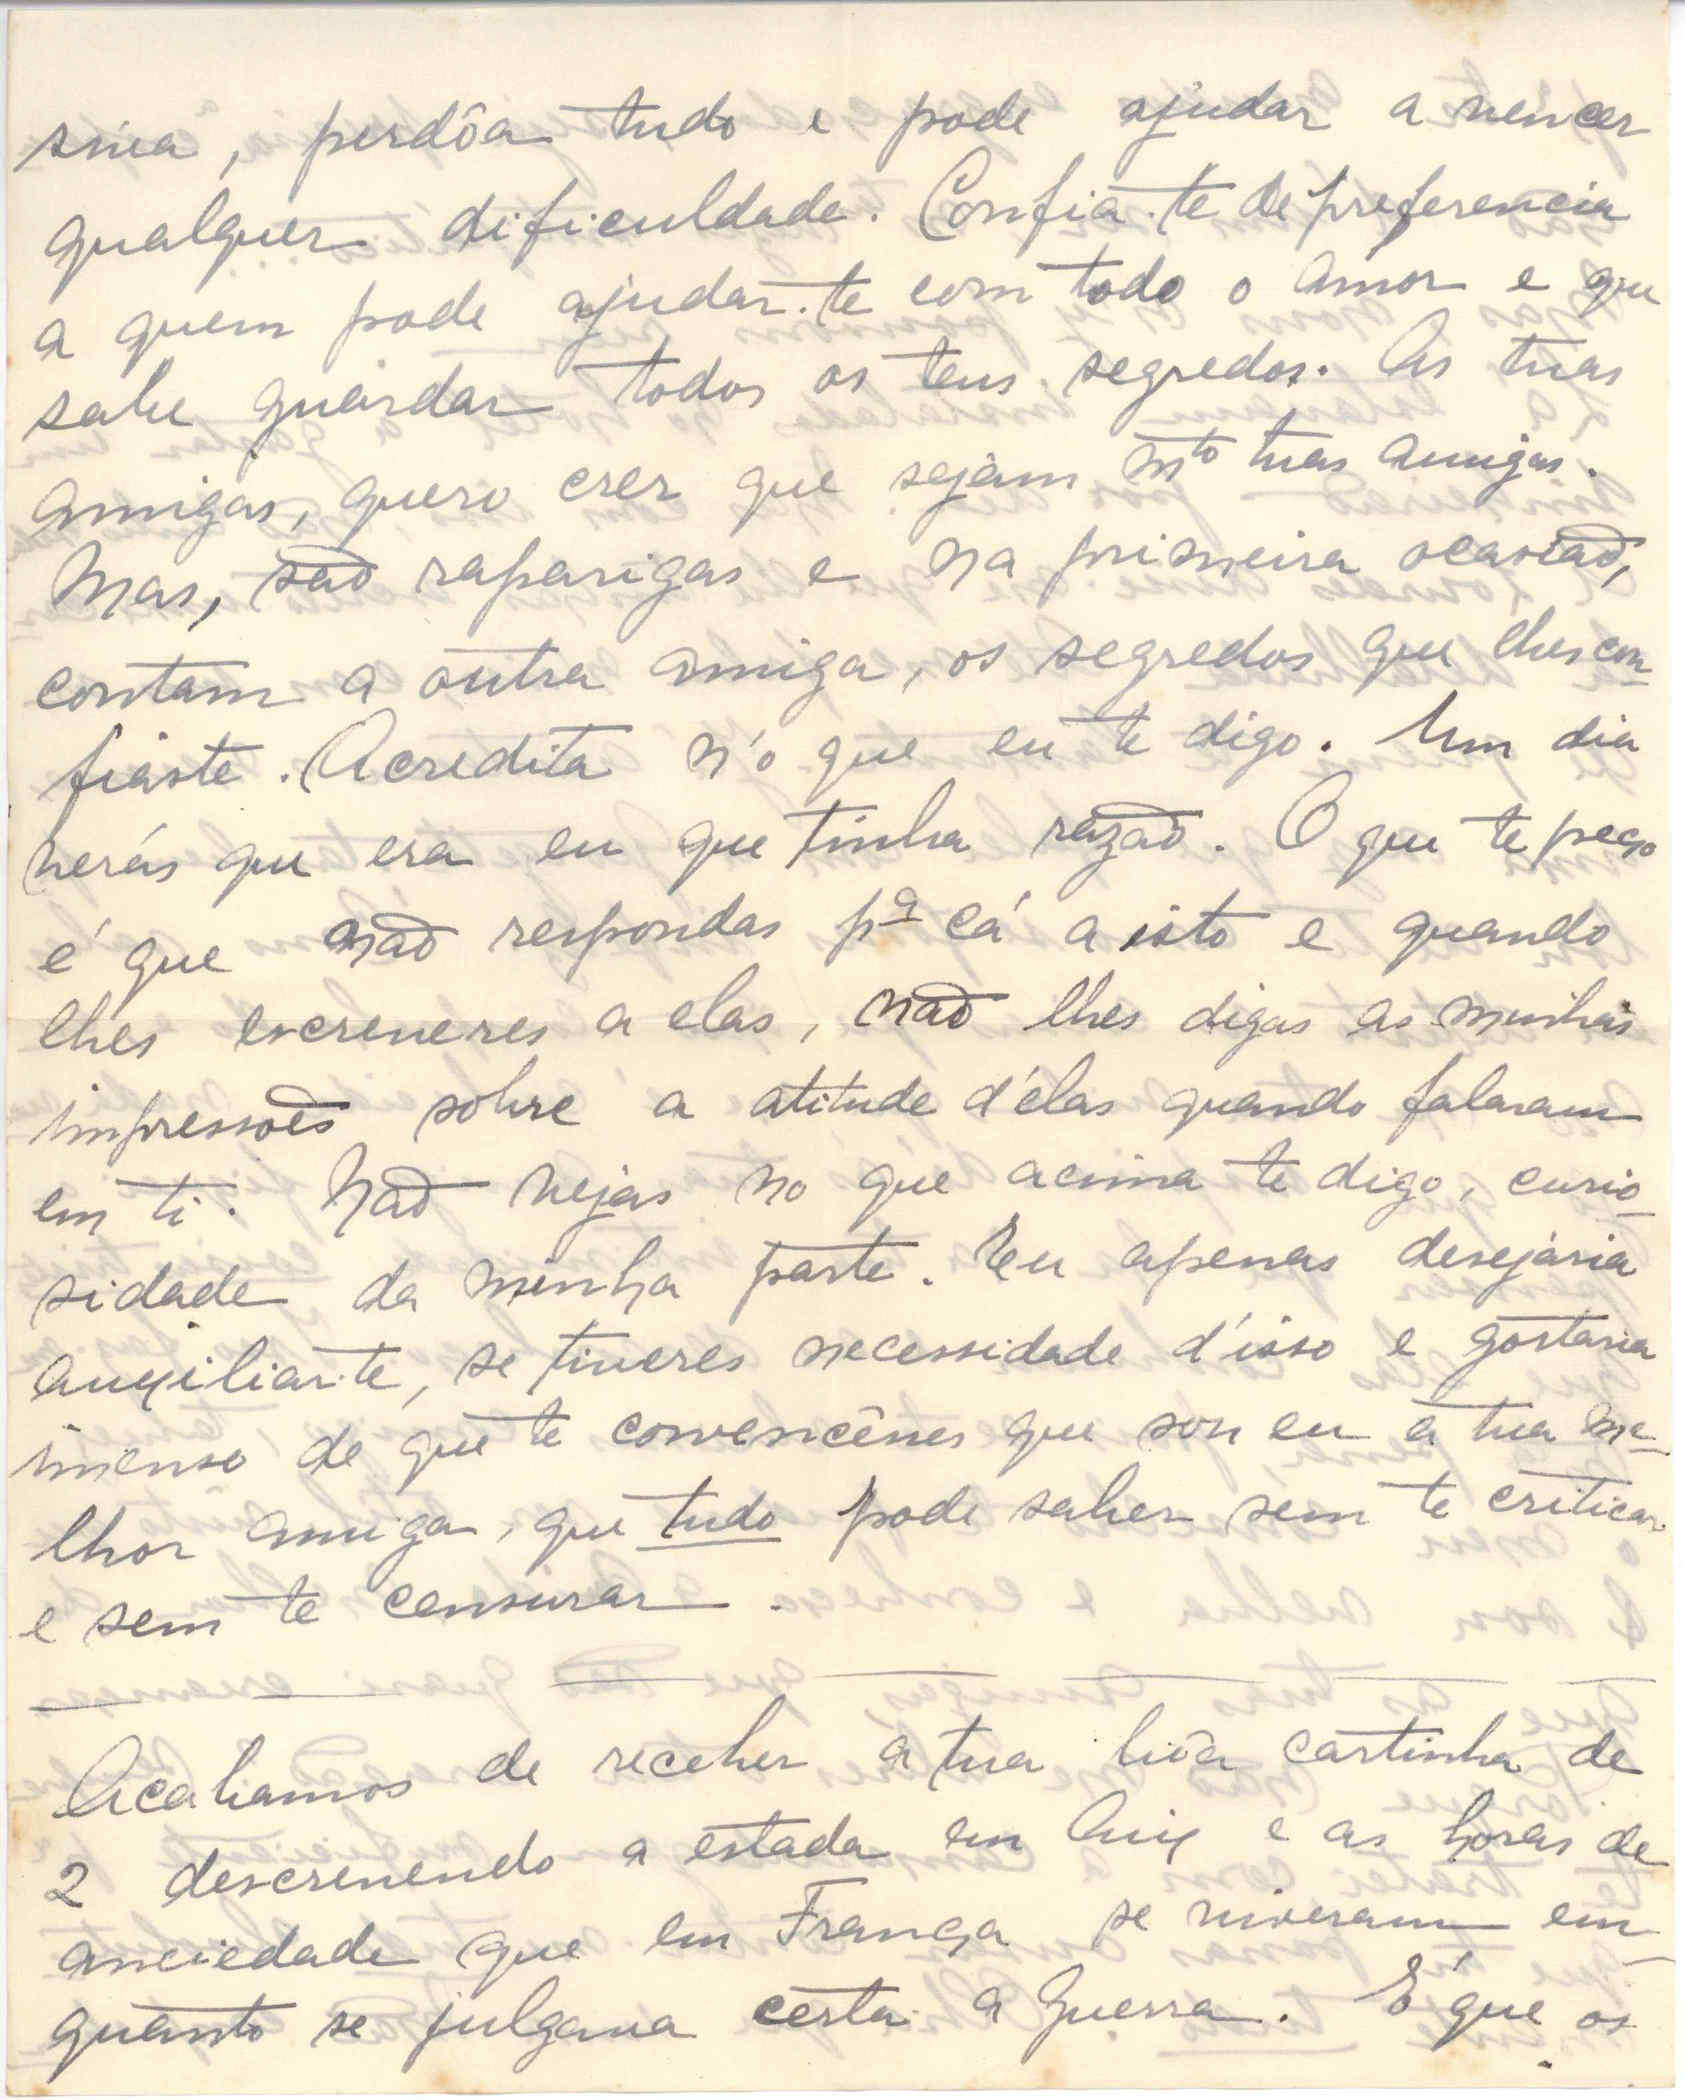 sinea, perdôa tudo e pode ajudar a vencer
qualquer dificuldade. Confia-te de preferencia
a quem pode ajudar-te com todo o Amor e que
sabe guardar todos os teus segredos. As tuas
amigas, quero crer que sejam mto tuas amigas.
Mas, são raparigas e na primeira ocasião,
contam a outra amiga, os segredos que lhes con-
fiaste. Acredita n'o que eu te digo. Um dia
verás que era eu que tinha razão. O que te peço
é que não respondas pª cá a isto e quando
lhes escreveres a elas, não lhes digas as minhas
impressões sobre a atitude d'élas quando falaram
em ti. Não vejas no que acima te digo, curio-
sidade da minha parte. Eu apenas desejaria
auxiliar-te, se tiveres necessidade d'isso e gostaria
imenso de que te convencêsses que sou eu a tua me-
lhor amiga, que tudo pode saber sem te criticar
e sem te censurar.
Acabamos de receber a tua bôa cartinha de
2 descrevendo a estada em Aix e as horas de
anciedade que em França se viveram em-
quanto se julgava certa a Guerra. É que os